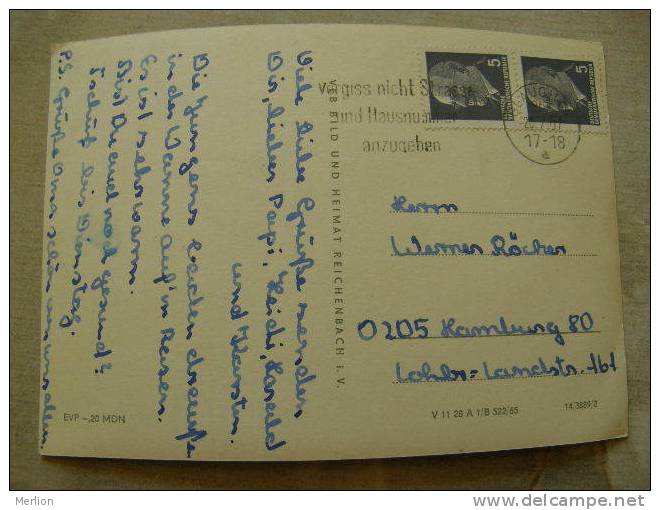 Viele liebe Grüße senden
Dir, lieber Papi, Heidi, Harald
und Karsten.
Die Jungens baden draußen
in der Wanne auf'n Rasen.
Es ist sehr warm.
Bist Du auch noch gesund?
Tschüß bis Dienstag.
P.S. Grüße Oma schön von uns allen.
EVP -,20 MDN
VEB BILD UND HEIMAT REICHENBACH I. V.
5
5
Vergiss nicht Strasse
und Hausnummer
anzugeben
17-18
a
Herrn
Werner Röcker
0205 Hamburg 80
Lohbr.-Landstr. 161
V 11 28 A 1/B 522/65
14.3889/2
Merlion
www.delcampe.net